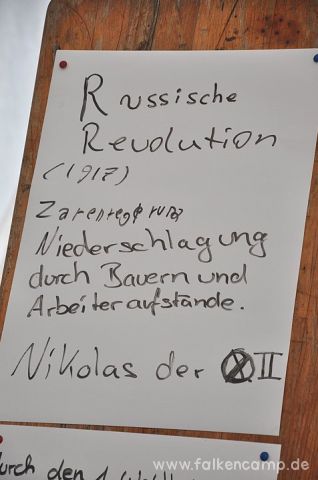 Russische
Revolution
(1917)
Zarenregirung
Niederschlagung
durch Bauern und
Arbeiteraufstände.
Nikolas der II
durch den 1.
www.falkencamp.de